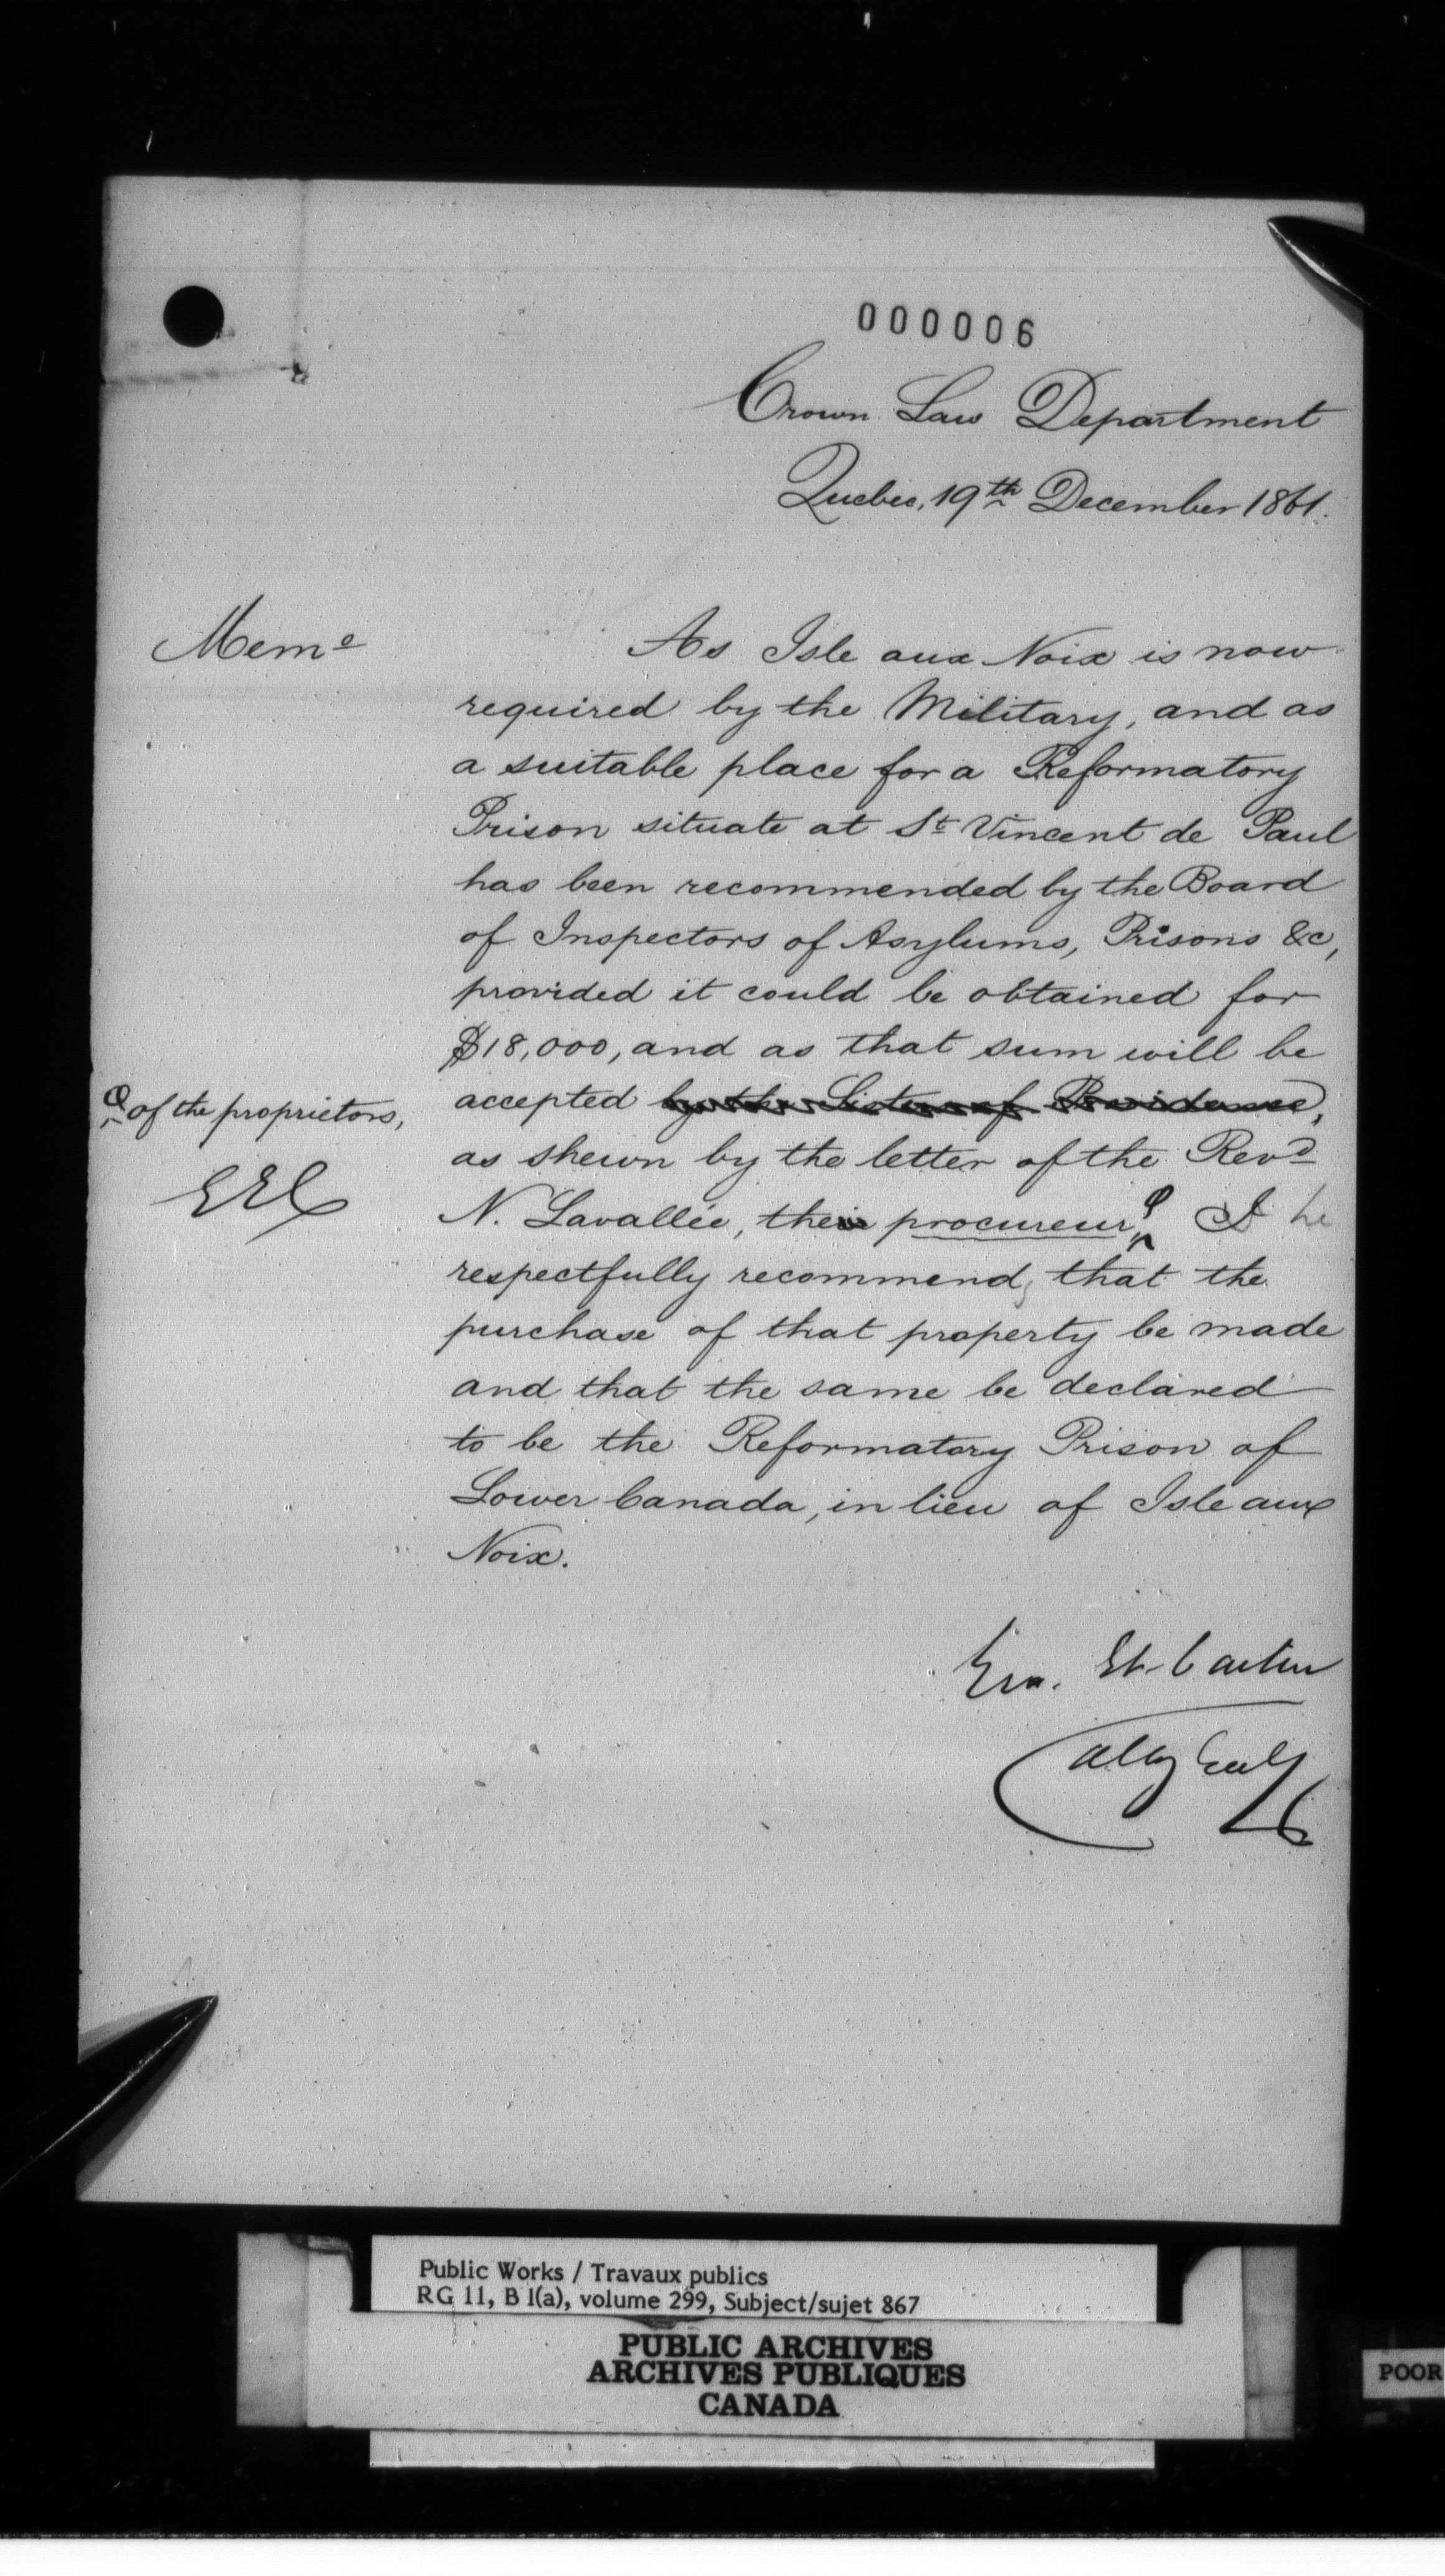 000006
Crown Law Department
Quebec, 19th December 1861.
Memo
As Isle aux Noix is now
required by the Military, and as
a suitable place for a Reformatory
Prison situate at St Vincent de Paul
has been recommended by the Board
of Inspectors of Asylums, Prisons &c,
provided it could be obtained for
$18,000, and as that sum will be
accepted by the Sisters of Providence,
as shewn by the letter of the Revd
of the proprietors,
GEC
N. Lavallée, their procureur, I he
respectfully recommend, that the
purchase of that property be made
and that the same be declared
to be the Reformatory Prison of
Lower Canada, in lieu of Isle aux
Noix.
Geo. Et. Cartier
Atty Genl
Public Works / Travaux publics
RG 11, B 1(a), volume 299, Subject/sujet 867
PUBLIC ARCHIVES
ARCHIVES PUBLIQUES
CANADA
POOR